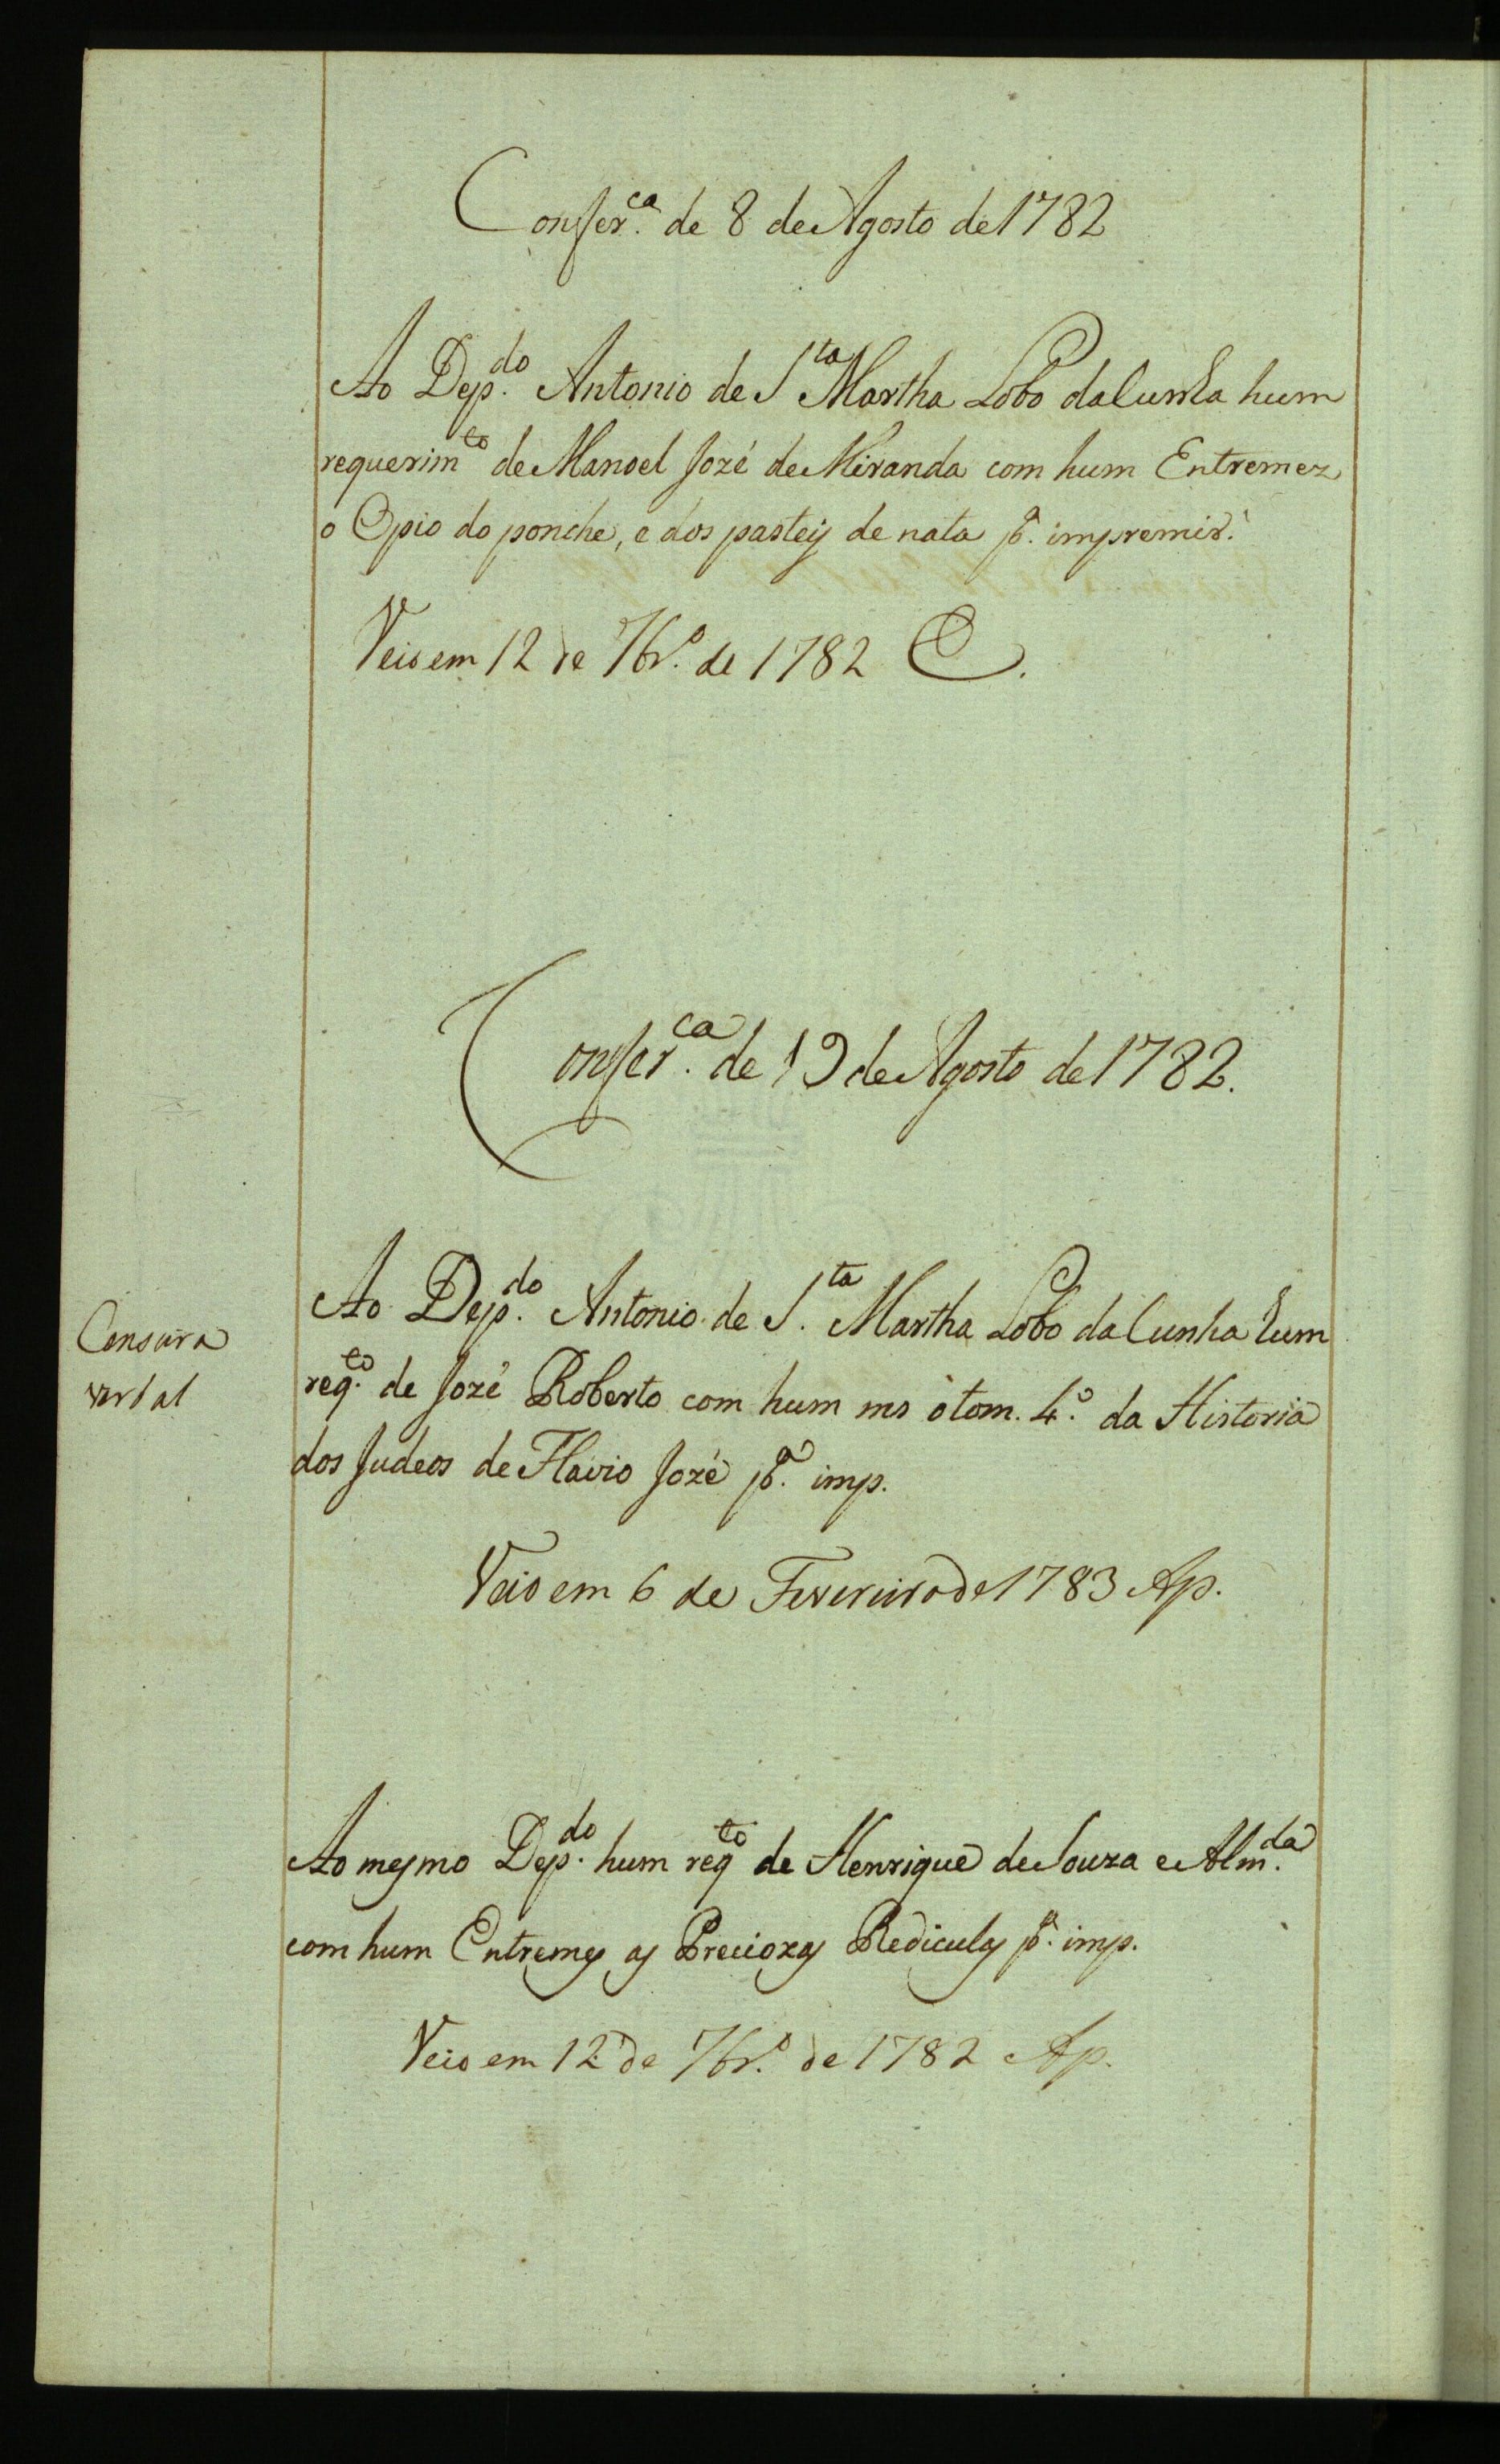 Confer.ca de 8 de Agosto de 1782
Ao Dep.do Antonio de S.ta Martha Lobo da Cunha hum
requerim.to de Manoel Jozé de Miranda com hum Entremez
o Opio do ponche, e dos pasteis de nata p.a impremir.
Veio em 12 de 7br.o de 1782
Confer.ca de 19 de Agosto de 1782.
Censura
verbal
Ao Dep.do Antonio de S.ta Martha Lobo da Cunha hum
req.to de Jozé Roberto com hum ms o tom. 4.o da Historia
dos Judeos de Flavio Jozé p.a imp.
Veio em 6 de Fevereiro de 1783 Ap.
Ao mesmo Dep.do hum req.to de Henrique de Souza e Alm.da
com hum Entremes as Preciozas Rediculas p.a imp.
Veio em 12 de 7br.o de 1782 Ap.